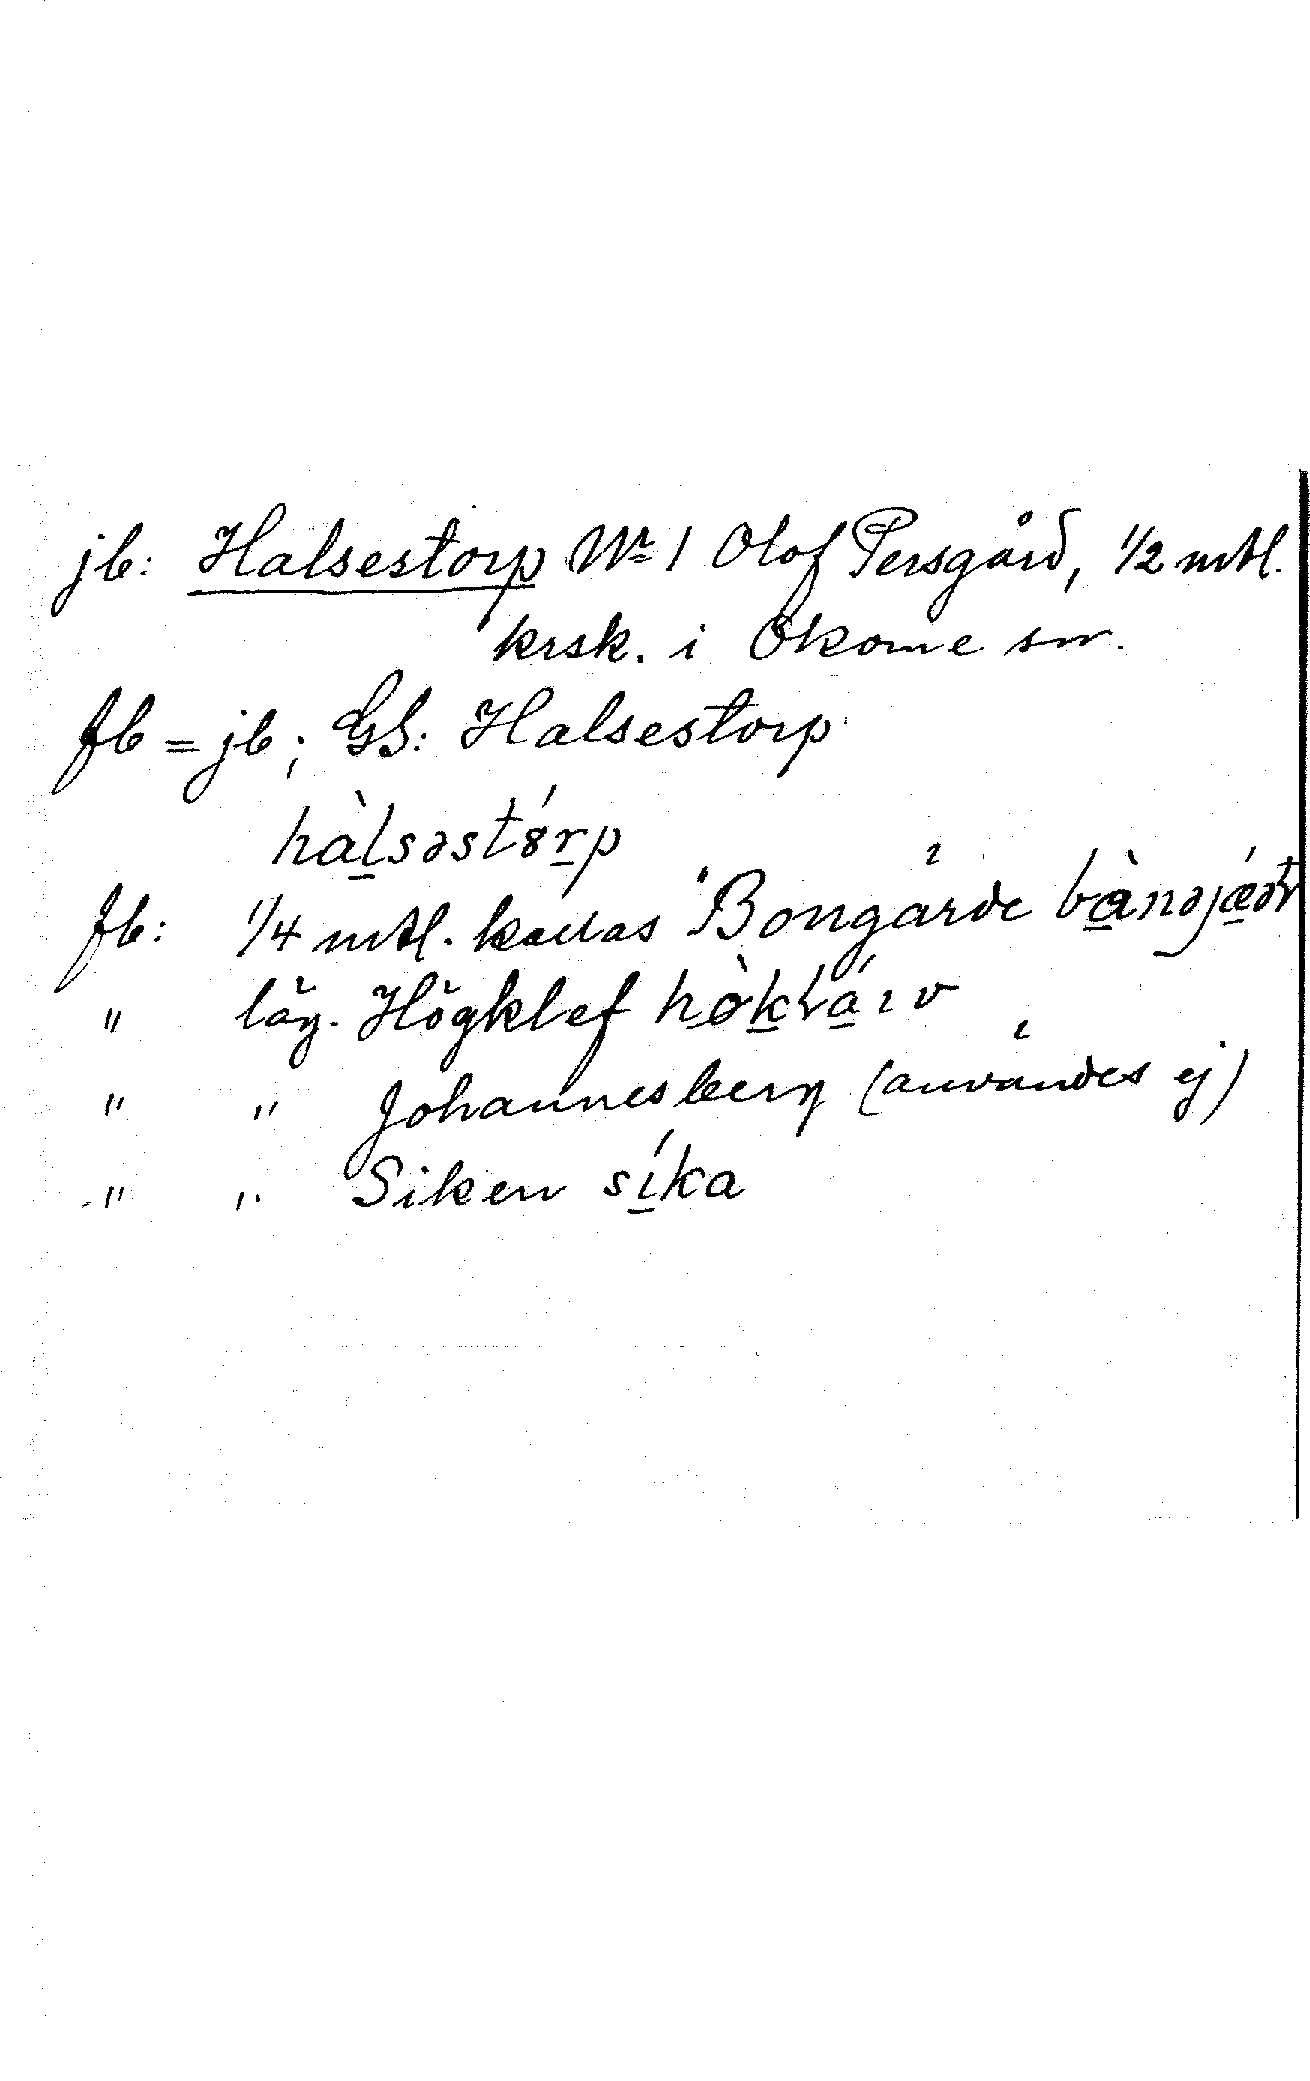 jb: Halsestorp Nr 1 Olof Persgård, 1/2 mtl.
krsk. i Ökome sn.
fb = jb; GS: Halsestorp
hàlsəstɤ́rp
fb: 1/4 mtl. kallas Bongärde
" läg. Högklef
" " Johannesberg (användes ej)
" " Siken síka